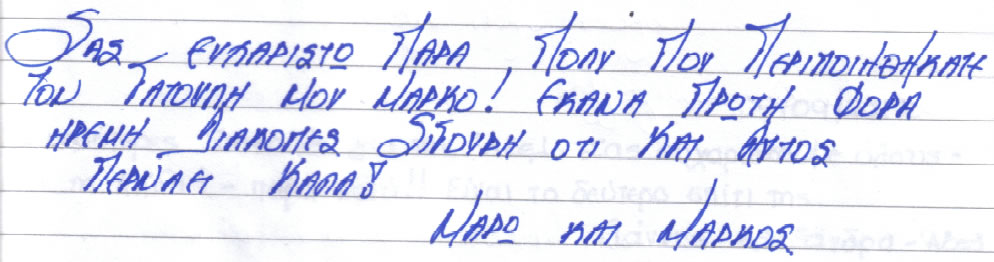 Σας ευχαριστω παρα πολυ που περιποιηθηκατε
τον γατουλη μου Μαρκο! Εκανα πρωτη φορα
ηρεμη διακοπες σιγουρη οτι και αυτος
περναει καλα!
Μαρω και Μαρκος